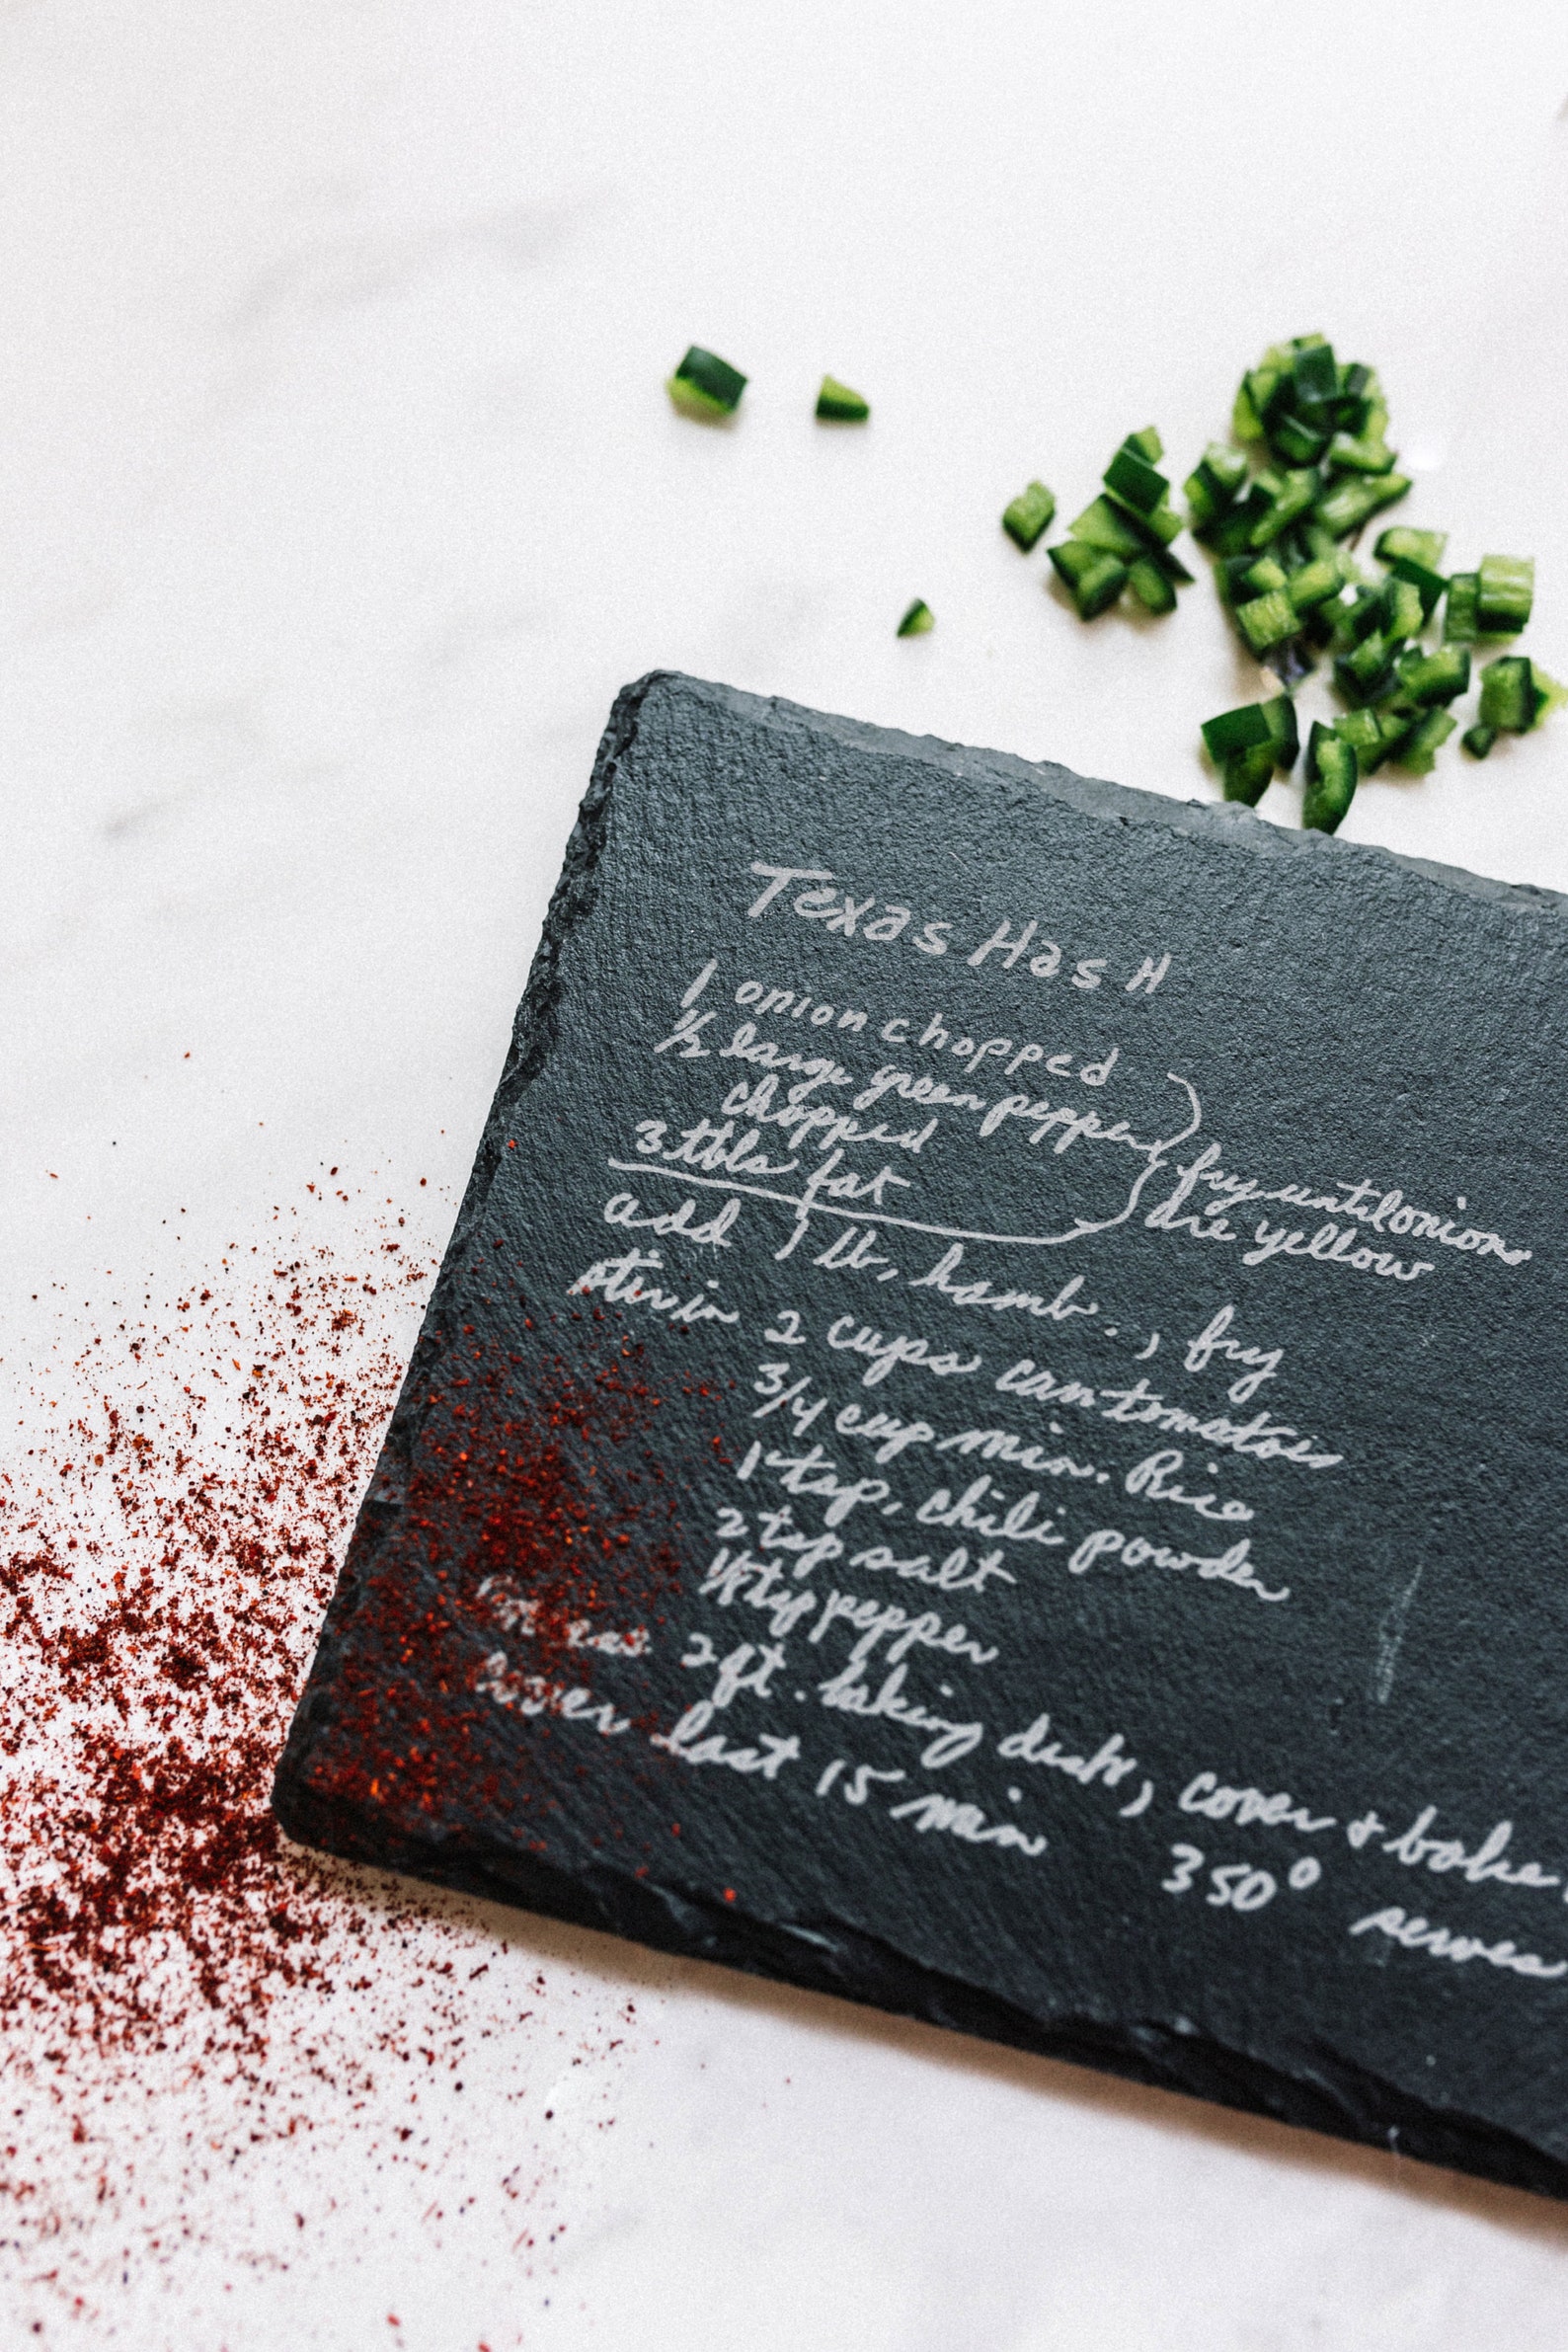 Texas Hash
1 onion chopped
1/2 large green pepper
chopped
3 tbls fat
fry until onions
are yellow
add 1 lb. hamb., fry
stir in 2 cups can tomatoes
3/4 cup min. Rice
1 tsp. chili powder
2 tsp salt
1/8 tsp pepper
2 qt. baking dish, cover & bake
last 15 min 350° serves